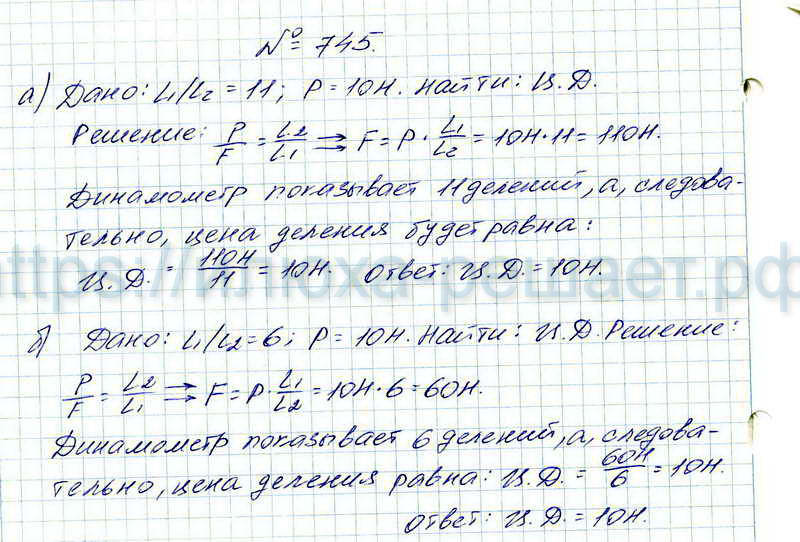 № 745.
а) Дано: L₁/L₂ = 11; P = 10Н. Найти: Ц.Д.
Решение: P/F = L2/L1 ⇒ F = P · L1/L2 = 10Н · 11 = 110Н.
Динамометр показывает 11 делений, а, следова-
тельно, цена деления будет равна:
Ц.Д. = 110Н/11 = 10Н. Ответ: Ц.Д. = 10Н.
б) Дано: L1/L2 = 6; P = 10Н. Найти: Ц.Д. Решение:
P/F = L2/L1 ⇒ F = P · L1/L2 = 10Н · 6 = 60Н.
Динамометр показывает 6 делений, а, следова-
тельно, цена деления равна: Ц.Д. = 60Н/6 = 10Н.
Ответ: Ц.Д. = 10Н.